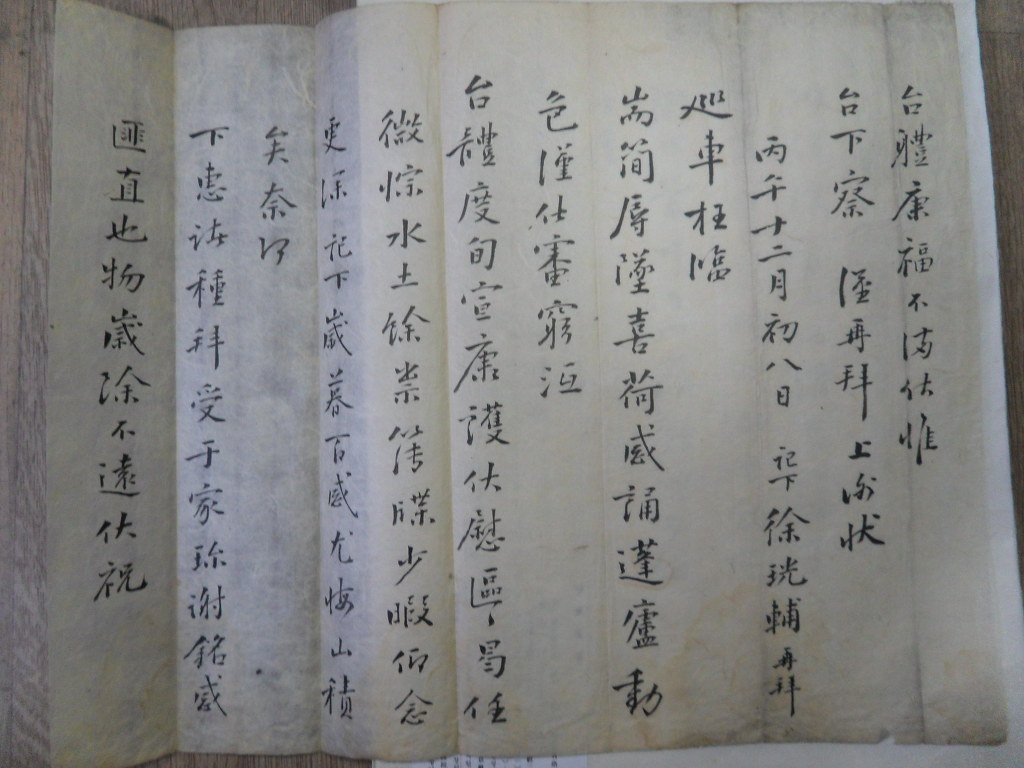 台體康福不備伏惟
台下察 謹再拜上謝狀
丙午十二月初八日 記下徐珖輔再拜
巡車枉臨
耑簡辱墜喜荷感誦蓬廬動
色謹伏審窮沍
台體度旬宣康護伏慰區〻曷任
微悰水土餘祟簿牒少暇仰念
更深記下歲暮百感尤悔山積
矣奈何
下惠諸種拜受于家珎謝銘感
匪直也物歲除不遠伏祝